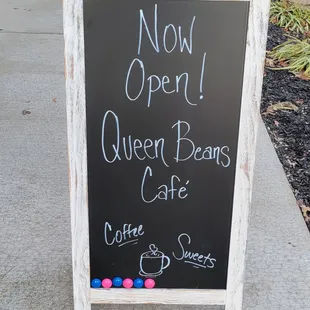 Now
Open!
Queen Beans
Café
Coffee
Sweets